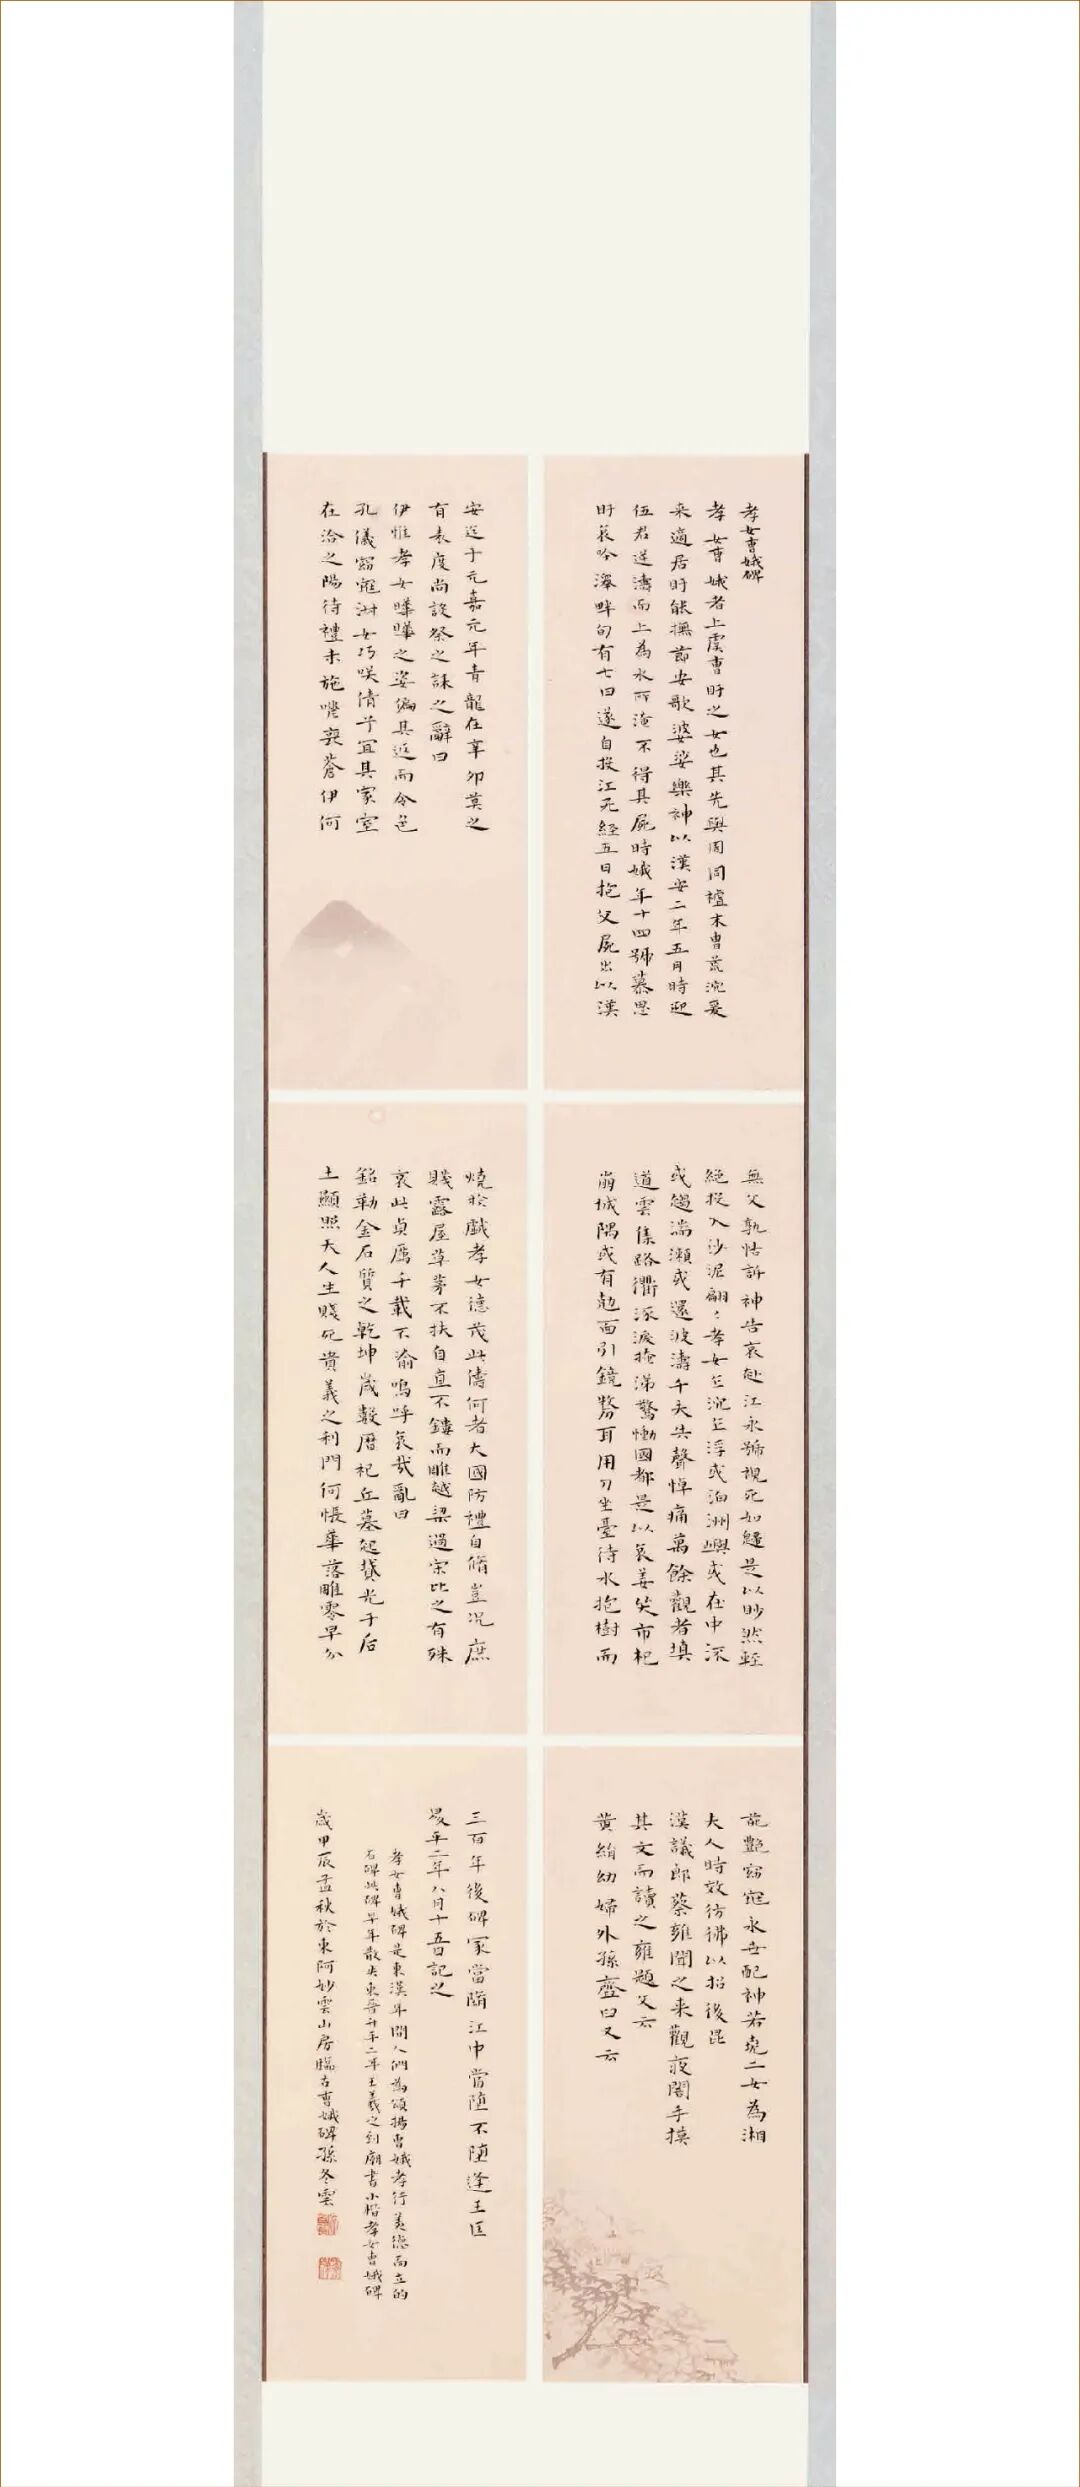 孝女曹娥碑
孝女曹娥者上虞曹盱之女也其先與周同禋末曹荒沉爰
来適居盱能撫節安歌婆娑樂神以漢安二年五月時迎
伍君逆濤而上為水所淹不得其屍時娥年十四號慕思
盱哀吟澤畔旬有七日遂自投江死經五日抱父屍出以漢
安迄于元嘉元年青龍在辛卯莫之
有表度尚設祭之誄之辭曰
伊惟孝女曄曄之姿偏其返而令色
孔儀窈窕淑女巧咲倩兮宜其家室
在洽之陽待禮未施嗟喪蒼伊何
無父孰怙訴神告哀赴江永號視死如歸是以眇然輕
絕投入沙泥翩〻孝女乍沉乍浮或泊洲嶼或在中流
或趨湍瀨或還波濤千夫失聲悼痛萬餘觀者填
道雲集路衢泳淚掩涕驚慟國都是以哀姜哭市杞
崩城隅或有尅面引鏡剺耳用刀坐臺待水抱樹而
燒於戲孝女德茂此儔何者大國防禮自脩豈况庶
賤露屋草茅不扶自直不鏤而雕越梁過宋比之有殊
哀此貞厲千載不渝嗚呼哀哉亂曰
銘勒金石質之乾坤歲數曆祀丘墓起墳光于后
土顯照夫人生賤死貴義之利門何悵華落雕零早分
葩艷窈窕永世配神若堯二女為湘
夫人時效彷彿以招後昆
漢議郎蔡雍聞之来觀夜闇手摸
其文而讀之雍題文云
黃絹幼婦外孫齏臼又云
三百年後碑冢當墮江中當墮不墮逢王匡
昇平二年八月十五日記之
孝女曹娥碑是東漢年間人們為頌揚曹娥孝行美德而立的
石碑此碑早年散失東晉升平二年王羲之到廟書小楷孝女曹娥碑
歲甲辰孟秋於東阿妙雲山房臨古曹娥碑孫冬雲